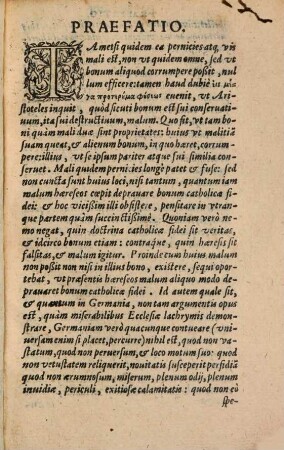 PRAEFATIO.
TAmetsi quidem ea pernicies atq; vis
mali est, non vt quidem omne, sed vt
bonum aliquod corrumpere poßit, nul
lum efficere: tamen haud dubiè
euenit, vt Ari-
stoteles inquit, quod sicuti bonum est sui conseruati-
uum, ita sui destructiuum, malum. Quo fit, vt tam bo
ni quàm mali duæ sint proprietates: huius vt malitiã
suam queat, & alienum bonum, in quo hæret, corrum-
pere: illius, vt se ipsum pariter atque sui similia con-
seruet. Mali quidem pernicies longè patet & fuse: sed
non cunctâ sunt huius loci, nisi tantùm, quantum iam
malum hæreseos cœpit deprauare bonum catholicæ fi-
dei: & hoc vicißim illi obsistere, pensitare in vtran-
que partem quàm succinctißimè. Quoniam verò ne-
mo negat, quin doctrina catholicæ fidei sit veritas,
& idcirco bonum etiam: contraque, quin hæresis sit
falsitas, & malum igitur. Proinde cum huius malum
non poßit non nisi in illius bono, existere, sequi opor-
tebat, vt præsentis hæreseos malum aliquo modo de-
prauaret bonum catholicæ fidei. Id autem quale sit,
& quantum in Germania, non tam argumentis opus
est, quàm miserabilibus Ecclesiæ lachrymis demon-
strare, Germaniam verò quacunque contueare (vni-
uersam enim si placet, percurre) nihil est, quod non va-
statum, quod non peruersum, & loco motum suo: quod
non vetustatem reliquerit, nouitatis susceperit perfidiã
quod non ærumnosum, miserum, plenum odij, plenum
inuidiæ, periculi, exitiosæ calamitatis: quod non eò
spe-